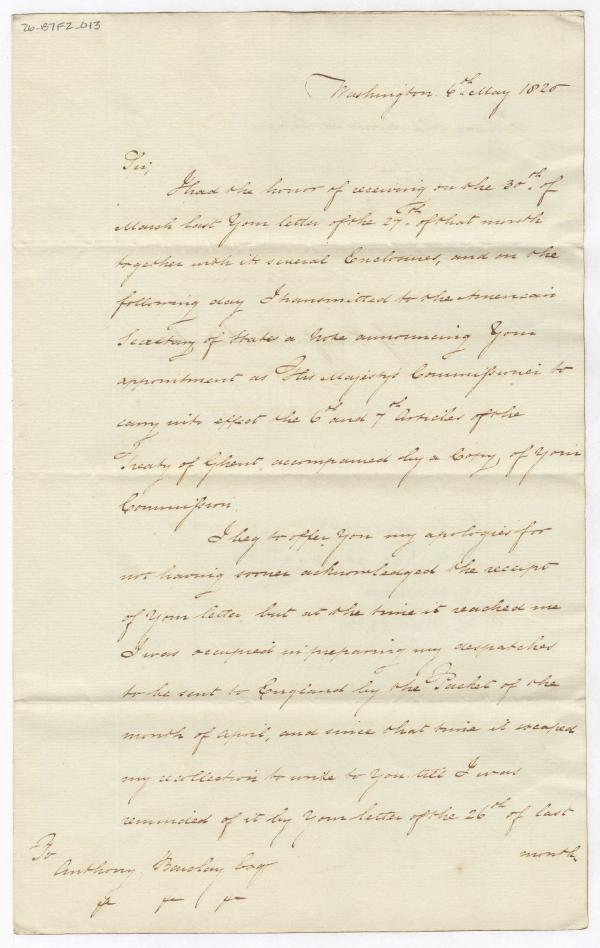 26-B7F2-013
Washington. 6th May 1820
Sir,
I had the honor of receiving on the 30th of
March last Your letter of the 27th of that month
together with its several Enclosures, and on the
following day I transmitted to the American
Secretary of State a Note announcing Your
appointment as His Majesty's Commissioner to
carry into effect the 6th and 7th Articles of the
Treaty of Ghent, accompanied by a Copy of Your
Commission.
I beg to offer You my apologies for
not having sooner acknowledged the receipt
of Your letter, but at the time it reached me
I was occupied in preparing my despatches
to be sent to England by the Packet of the
month of April, and since that time it escaped
my recollection to write to You till I was
reminded of it by Your letter of the 26th of last
month
To
Anthony Barclay Esqr